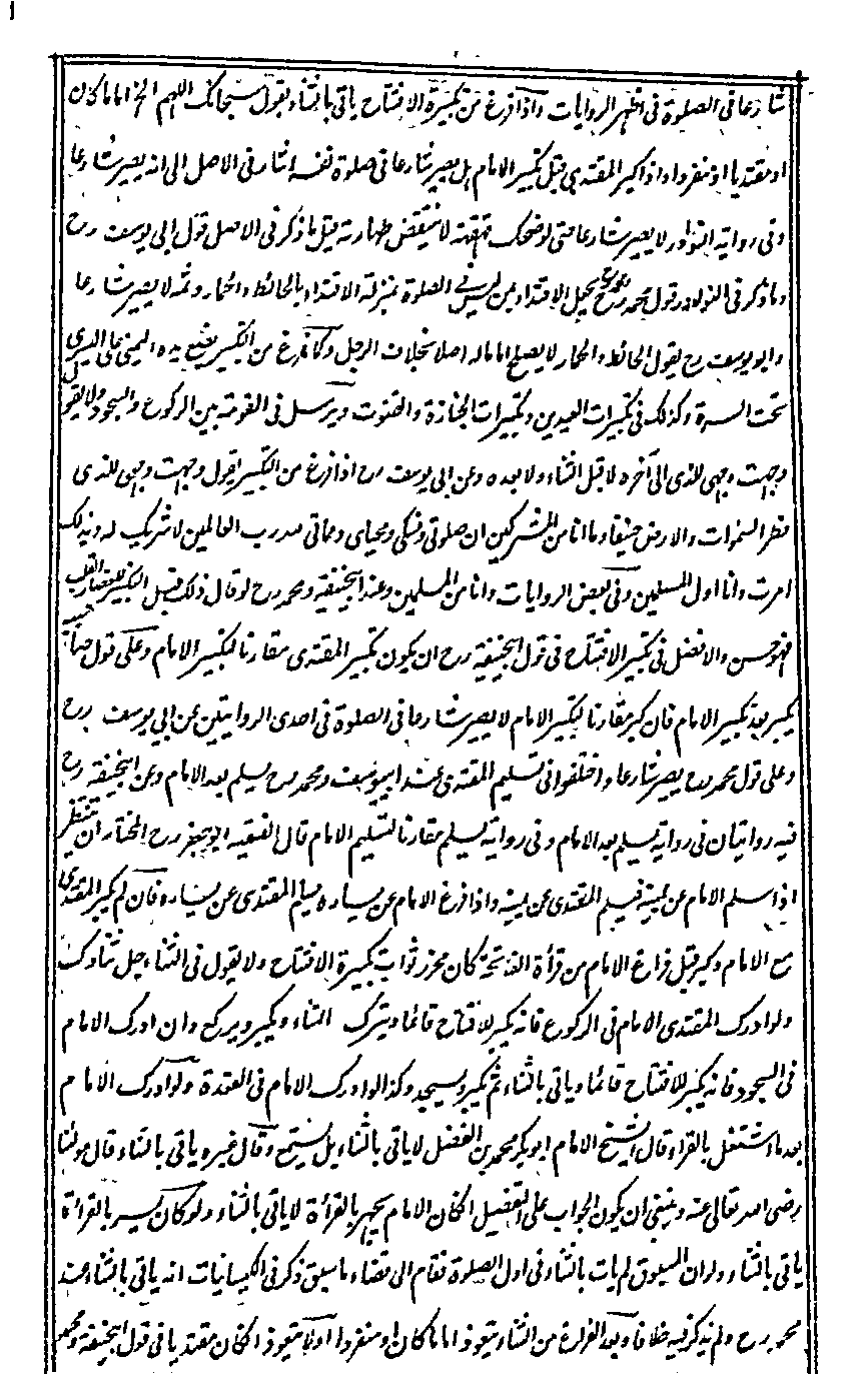 شارعا فى الصلوة فى اظهر الروايات واذا فرغ من تكبيرة الافتتاح ياتى بالثناء يقول سبحانك اللهم الخ اماما كان
او مقتديا او منفردا واذا كبر المقتدى قبل تكبير الامام بل يصير شارعا فى صلوة نفسه اشار فى الاصل الى انه يصير شارعا
وفى رواية النوادر لا يصير شارعا حتى لو ضحك قهقهة لا ينتقض طهارته قيل ما ذكر فى الاصل قول ابى يوسف رح
وما ذكر فى النوادر قول محمد رح يجعل الاقتداء بمن ليس فى الصلوة بمنزلة الاقتداء بالحائط والحمار وثمه لا يصير شارعا
وابو يوسف رح يقول الحائط والحمار لا يصلح اماما له اصلا بخلاف الرجل وكما فرغ من التكبير يضع يده اليمنى على اليسرى
تحت السرة وكذلك فى تكبيرات العيدين وتكبيرات الجنازة والقنوت ويرسل فى القومة بين الركوع والسجود ولا يقول
وجهت وجهى للذى الى آخره لا قبل الثناء ولا بعده وعن ابى يوسف رح اذا فرغ من التكبير يقول وجهت وجهى للذى
فطر السموات والارض حنيفا وما انا من المشركين ان صلوتى ونسكى ومحياى ومماتى لله رب العالمين لا شريك له وبذلك
امرت وانا اول المسلمين وفى بعض الروايات وانا من المسلمين وعند ابيحنيفة ومحمد رح لو قال ذلك قبل التكبير لاحضار القلب
فهو حسن والافضل فى تكبير الافتتاح فى قول ابيحنيفة رح ان يكون تكبير المقتدى مقارنا لتكبير الامام وعلى قول صاحبيه
يكبر بعد تكبير الامام فان كبر مقارنا لتكبير الامام لا يصير شارعا فى الصلوة فى احدى الروايتين عن ابى يوسف رح
وعلى قول محمد رح يصير شارعا واختلفوا فى تسليم المقتدى عند ابيوسف ومحمد رح يسلم بعد الامام وعن ابيحنيفة رح
فيه روايتان فى رواية يسلم بعد الامام وفى رواية يسلم مقارنا لتسليم الامام قال الفقيه ابو جعفر رح المختار ان ينتظر
اذا سلم الامام عن يمينه فيسلم المقتدى عن يمينه واذا فرغ الامام عن يساره يسلم المقتدى عن يساره فان لم يكبر المقتدى
مع الامام وكبر قبل فراغ الامام من قراءة الفاتحة كان محرز ثواب تكبيرة الافتتاح ولا يقول فى الثناء جل ثناؤك
ولو ادرك المقتدى الامام فى الركوع فانه يكبر للافتتاح قائما ويترك الثناء ويكبر ويركع وان ادرك الامام
فى السجود فانه يكبر للافتتاح قائما وياتى بالثناء ثم يكبر ويسجد وكذا لو ادرك الامام فى القعدة ولو ادرك الامام
بعد ما اشتغل بالقراءة قال الشيخ الامام ابو بكر محمد بن الفضل لا ياتى بالثناء بل يستمع وقال غيره ياتى بالثناء قال مولانا
رضى الله تعالى عنه وينبغى ان يكون الجواب على التفصيل ان كان الامام يجهر بالقراءة لا ياتى بالثناء ولو كان يسر بالقراءة
ياتى بالثناء ولو ان المسبوق لم يات بالثناء فى اول الصلوة فقام الى قضاء ما سبق ذكر فى الكيسانيات انه ياتى بالثناء عند
محمد رح ولم يذكر فيه خلافا وبعد الفراغ من الثناء يتعوذ اماما كان او منفردا ولا يتعوذ ان كان مقتديا فى قول ابيحنيفة ومحمد